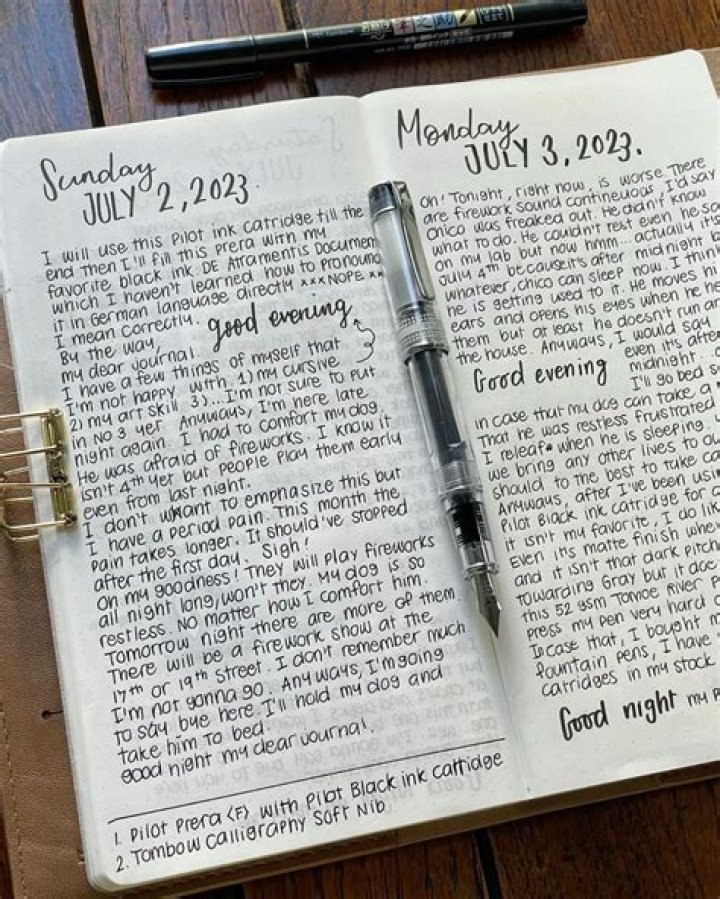 文助
Sunday
JULY 2, 2023.
I will use this Pilot ink catridge till the
end then I'll fill this prera with my
favorite black ink. DE Atramentis Document
which I haven't learned how to pronounc
it in German language directly xxx NOPE xx
I mean correctly.
By the way, good evening
my dear journal.
I have a few things of myself that
I'm not happy with. 1) my cursive
2) my art skill 3)... I'm not sure to put
in NO 3 yet. Anyways, I'm here late
night again. I had to comfort my dog.
He was afraid of fireworks. I know it
isn't 4th yet but people play them early
even from last night.
I don't want to emphasize this but
I have a period pain. This month the
pain takes longer. It should've stopped
after the first day. Sigh!
Oh my goodness! They will play fireworks
all night long, won't they. My dog is so
restless. No matter how I comfort him.
Tomorrow night there are more of them.
There will be a firework show at the
17th or 19th street. I don't remember much
I'm not gonna go. Any ways, I'm going
to say bye here. I'll hold my dog and
take him to bed.
good night my dear journal.
1. Pilot Prera <F> with Pilot Black ink catridge
2. Tombow Calligraphy Soft Nib
Monday
JULY 3, 2023.
Oh! Tonight, right now, is worse. There
are firework sound continueous, I'd say
Chico was freaked out. He didn't know
what to do. He couldn't rest even he sa
on my lab but now hmm... actually it's
July 4th because it's after midnight b
whatever, chico can sleep now. I think
he is getting used to it. He moves hi
ears and opens his eyes when he he
them but at least he doesn't run ar
the house. Anyways, I would say
Good evening even it's afte
midnight.
I'll go bed s
In case that my dog can take a r
That he was restless frustrated
I releaf when he is sleeping.
we bring any other lives to ou
should to the best to take ca
Anyways, after I've been using
Pilot Black ink catridge for a
it isn't my favorite, I do lik
Even it's matte finish when
and it isn't that dark pitch
towarding Gray but it doe
this 52 gsm Tomoe River P
press my pen very hard
Incase that, I bought m
fountain pens, I have
catridges in my stock.
Good night my